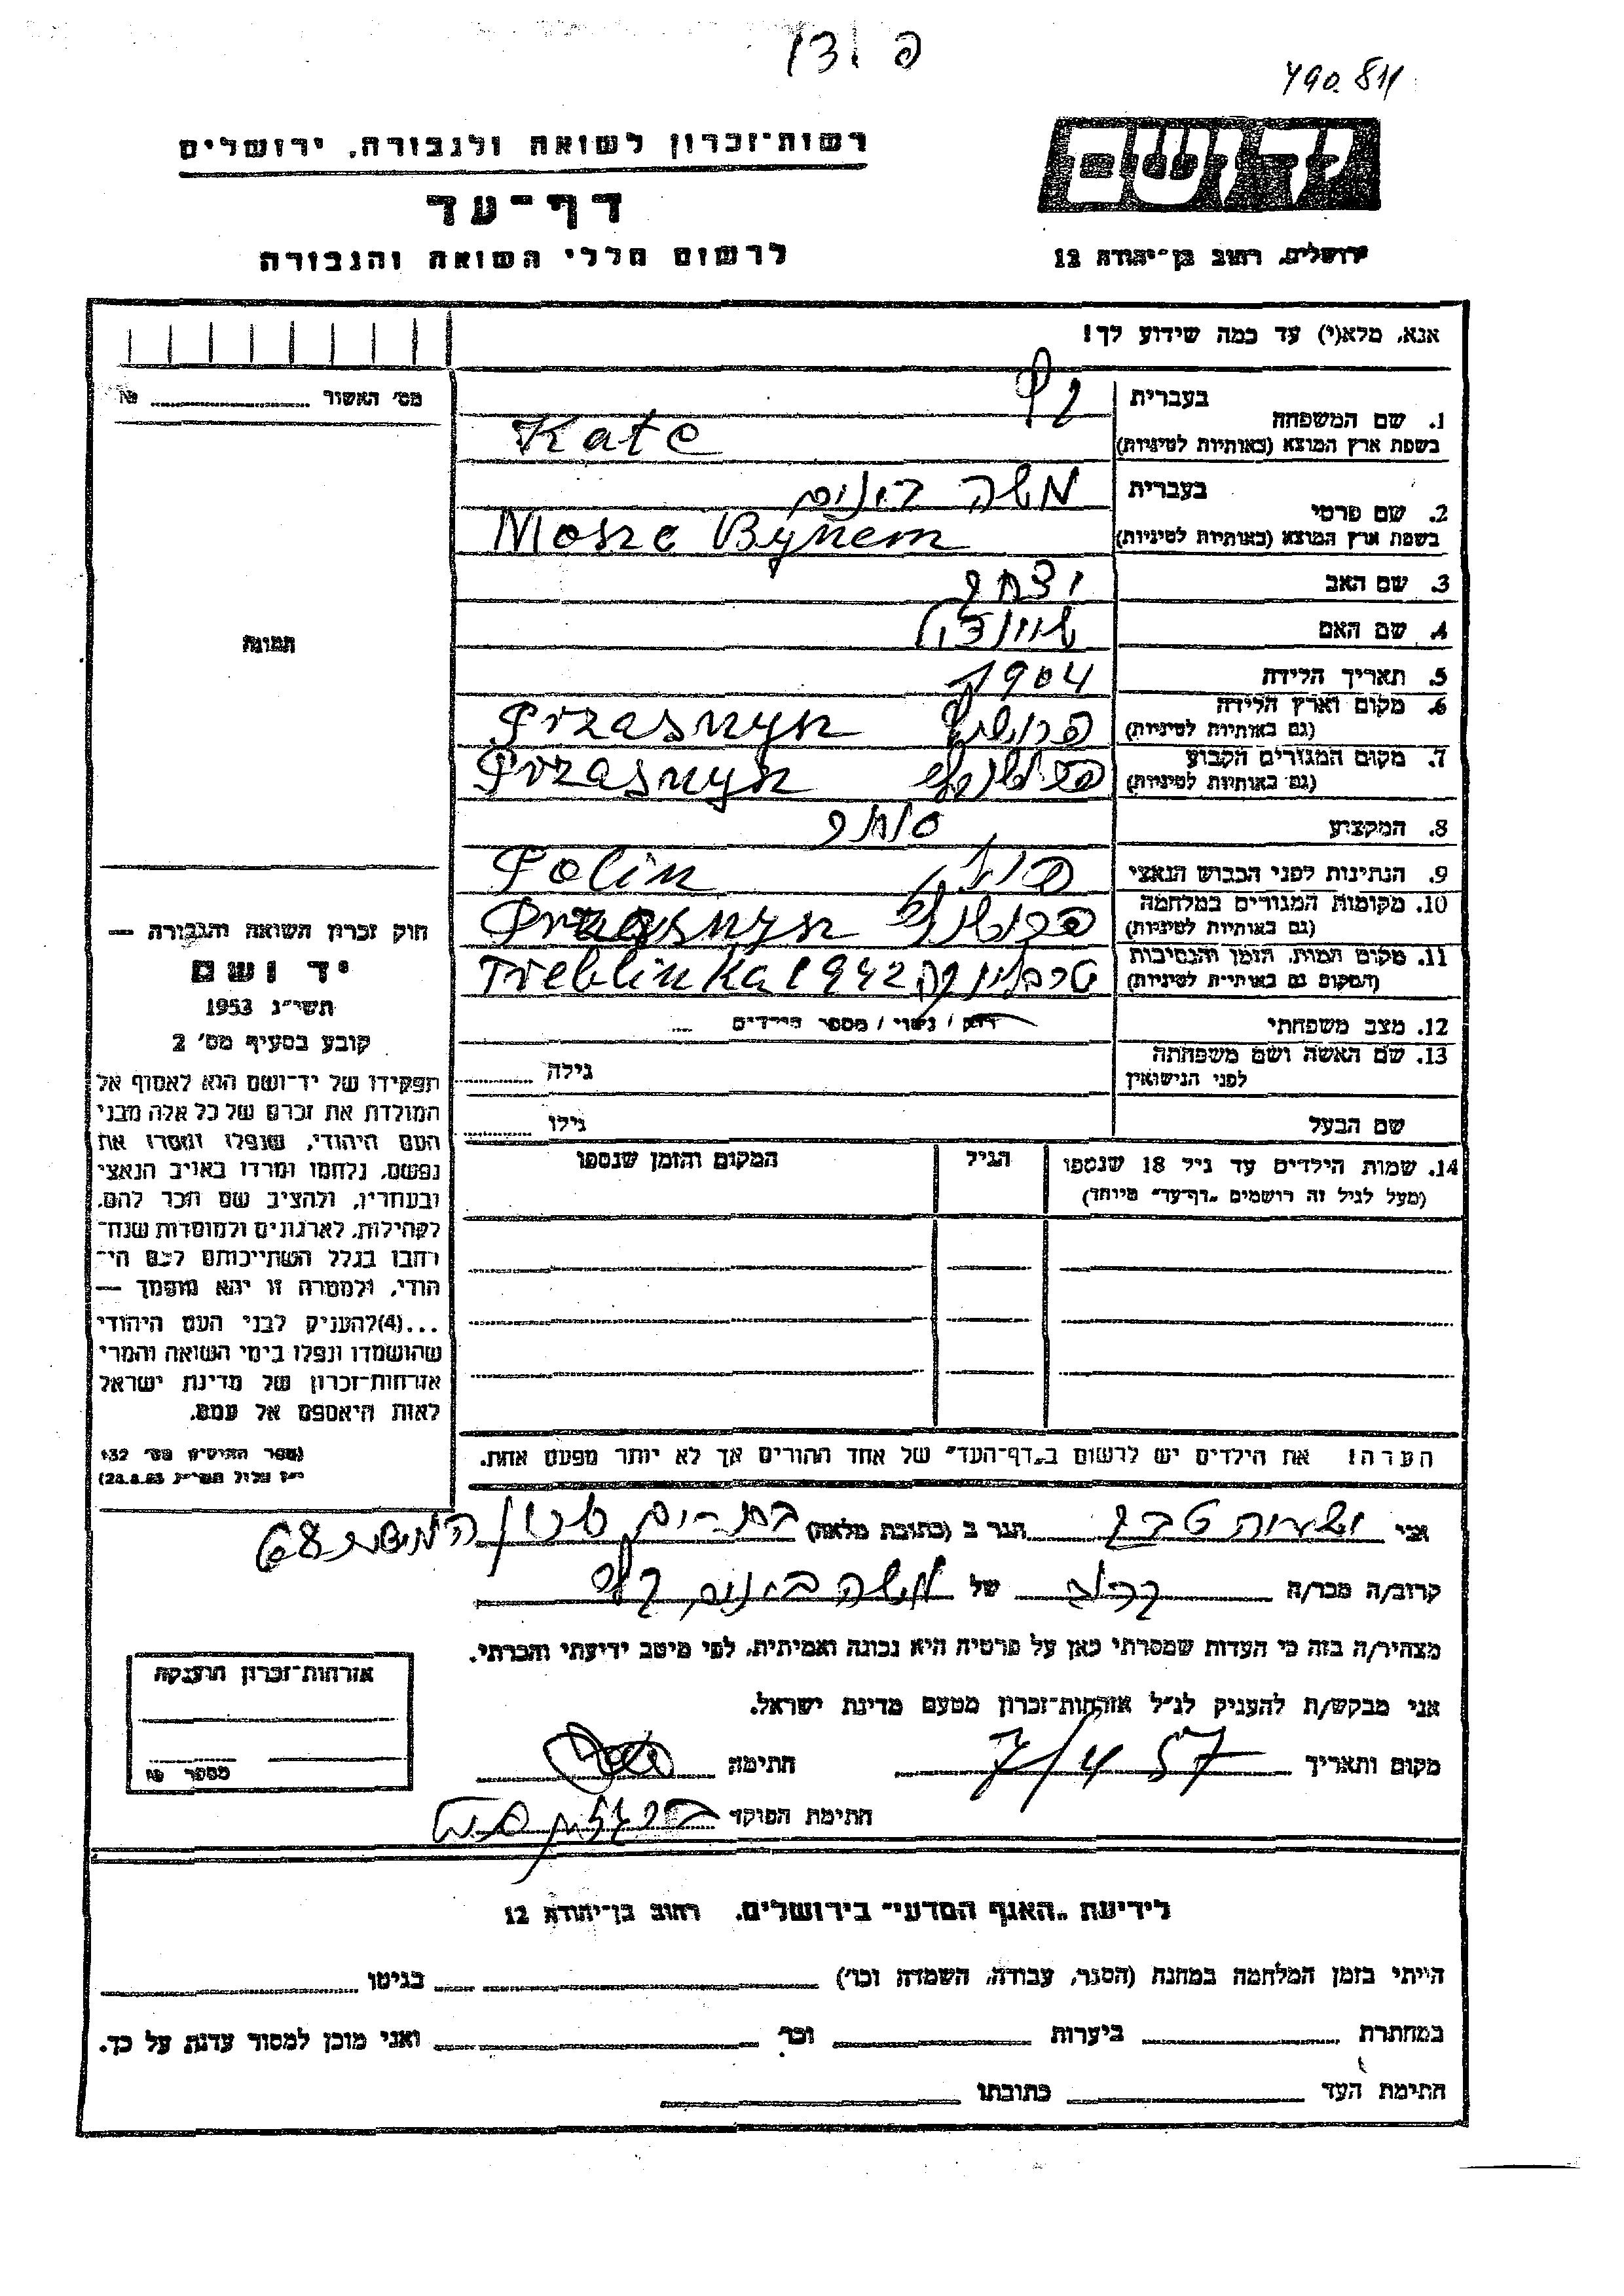 790.811
רשות־זכרון לשואה ולגבורה, ירושלים
דף־עד
לרשום חללי השואה והגבורה
יד ושם
ירושלים, רחוב בן־יהודה 12
אנא, מלא(י) עד כמה שידוע לך!
מס' האשור № 
1. שם המשפחה
בעברית
בשפת ארץ המוצא (באותיות לטיניות) Kate
2. שם פרטי
בעברית משה בונים
בשפת ארץ המוצא (באותיות לטיניות) Mosze Bynem
3. שם האב יצחק
4. שם האם
5. תאריך הלידה 1904
6. מקום וארץ הלידה
(גם באותיות לטיניות) Przasnysz
7. מקום המגורים הקבוע
(גם באותיות לטיניות) Przasnysz
8. המקצוע סוחר
9. הנתינות לפני הכבוש הנאצי פולין Polin
10. מקומות המגורים במלחמה
(גם באותיות לטיניות) Przasnysz
11. מקום המות, הזמן והנסיבות
(המקום גם באותיות לטיניות) טרבלינקה 1942 Treblinka
12. מצב משפחתי רווק / נשוי / מספר הילדים
13. שם האשה ושם משפחתה
לפני הנישואין גילה
שם הבעל גילו
14. שמות הילדים עד גיל 18 שנספו
(מעל לגיל זה רושמים "דף־עד" מיוחד)
הגיל
המקום והזמן שנספו
הערה: את הילדים יש לרשום ב"דף־העד" של אחד ההורים אך לא יותר מפעם אחת.
תמונה
חוק זכרון השואה והגבורה —
יד ושם
תשי"ג 1953
קובע בסעיף מס' 2
תפקידו של יד־ושם הוא לאסוף אל
המולדת את זכרם של כל אלה מבני
העם היהודי, שנפלו ומסרו את
נפשם, נלחמו ומרדו באויב הנאצי
ובעוזריו, ולהציב שם וזכר להם,
לקהילות, לארגונים ולמוסדות שנח־
רבו בגלל השתייכותם לעם הי־
הודי, ולמטרה זו יהא מוסמך —
...(4) להעניק לבני העם היהודי
שהושמדו ונפלו בימי השואה והמרי
אזרחות־זכרון של מדינת ישראל
לאות היאספם אל עמם.
(ספר החוקים מס' 132
י"ז אלול תשי"ג 28.8.53)
אני הגר ב (כתובת מלאה) בת־ים
קרוב/ה מכר/ה קרוב של משה בונים
מצהיר/ה בזה כי העדות שמסרתי כאן על פרטיה היא נכונה ואמיתית, לפי מיטב ידיעתי והכרתי.
אני מבקש/ת להעניק לנ"ל אזרחות־זכרון מטעם מדינת ישראל.
מקום ותאריך 7/4 57 חתימה
חתימת הפוקד
אזרחות־זכרון הוענקה
מספר
לידיעת "האגף המדעי" בירושלים, רחוב בן־יהודה 12
הייתי בזמן המלחמה במחנה (הסגר, עבודה, השמדה וכו') בגיטו
במחתרת ביערות וכו' ואני מוכן למסור עדות על כך.
חתימת העד כתובתו